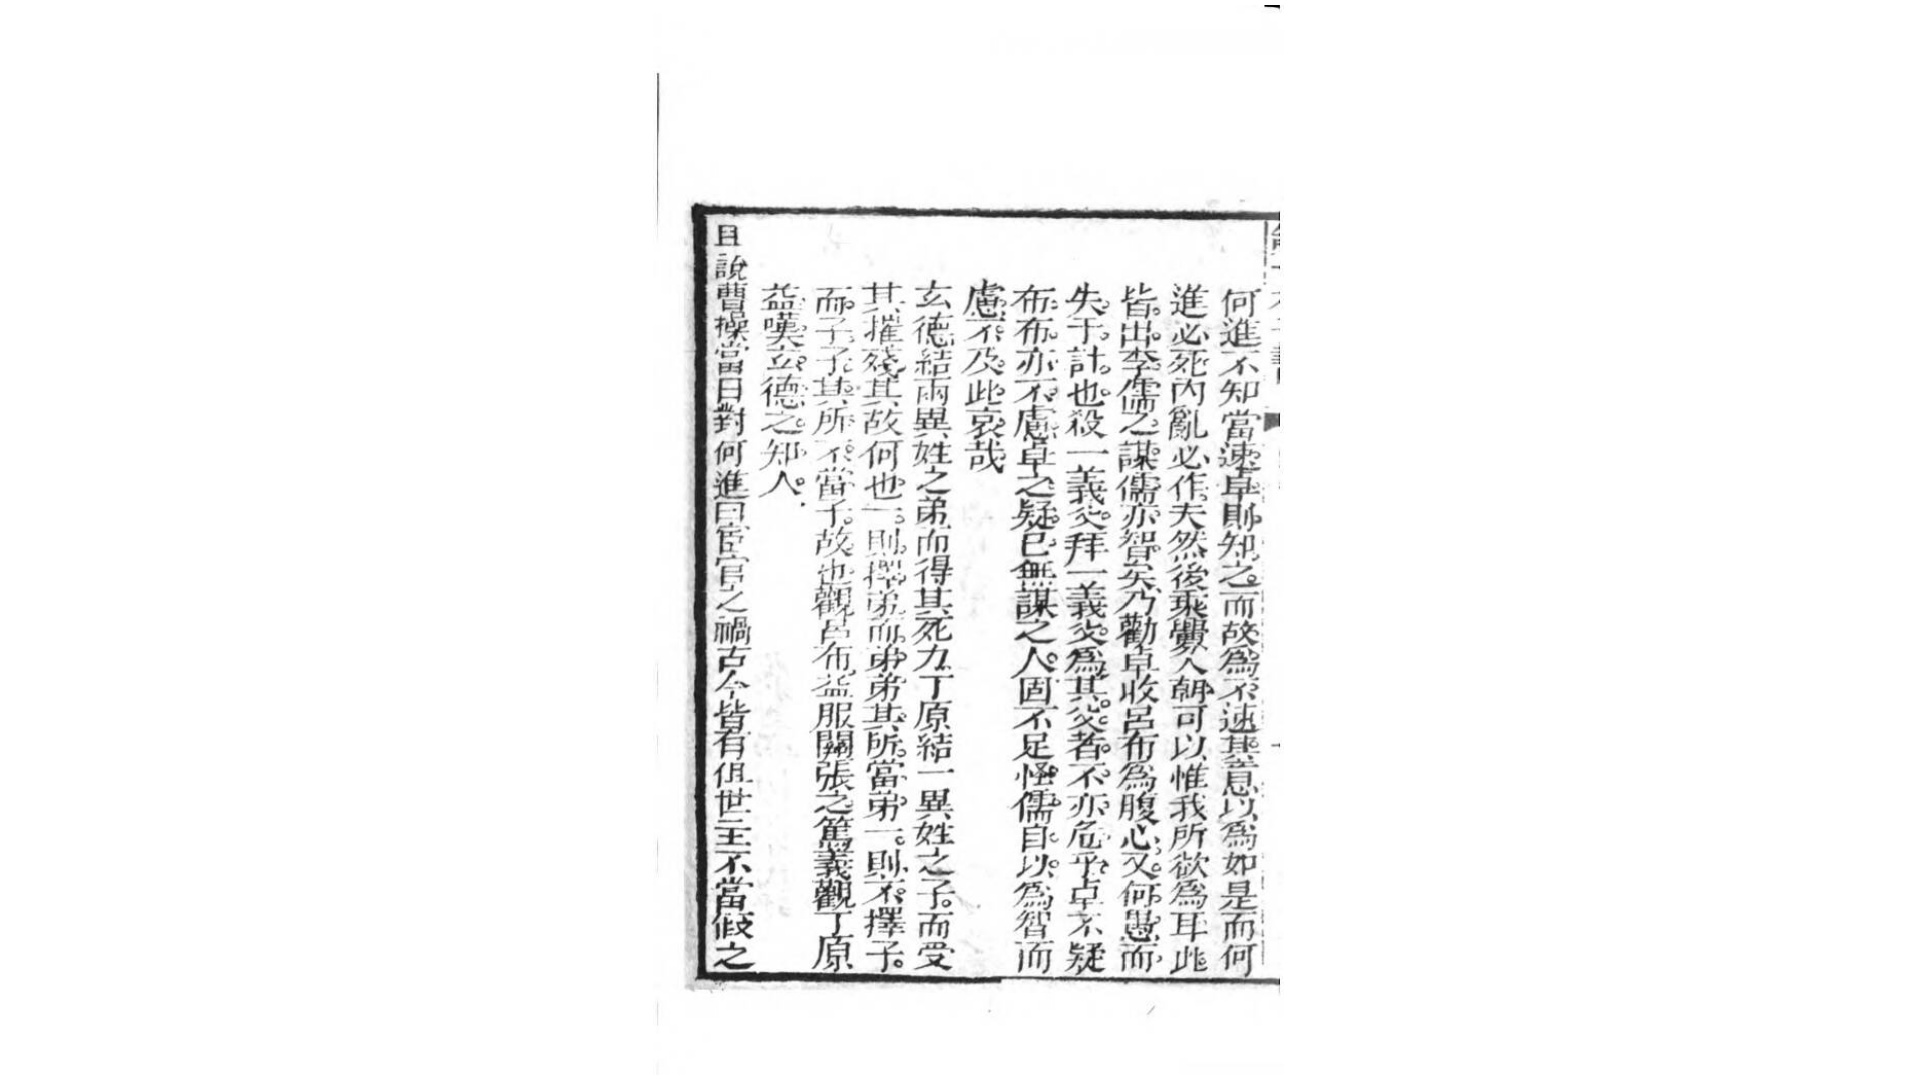 何進不知當速卓則知之而故為不速其意以為如是而何
進必死內亂必作夫然後乘釁入朝可以惟我所欲為耳此
皆出李儒之謀儒亦智矣乃勸卓收呂布為腹心又何愚而
失于計也殺一義父拜一義父為其父者不亦危乎卓不疑
布布亦不慮卓之疑已無謀之人固不足怪儒自以為智而
慮不及此哀哉
玄德結兩異姓之弟而得其死力丁原結一異姓之子而受
其摧殘其故何也一則擇弟而弟弟其所當弟一則不擇子
而子子其所不當子故也觀呂布益服關張之篤義觀丁原
益嘆玄德之知人
且說曹操當日對何進曰宦官之禍古今皆有但世主不當假之